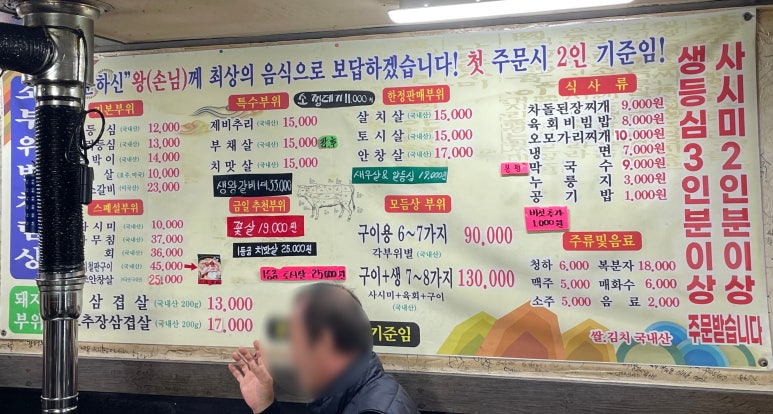 하신"왕(손님)께 최상의 음식으로 보답하겠습니다! 첫 주문시 2인 기준임!
소 부위별 특상
본부위
등심 (국내산) 12,000
등심 (국내산) 13,000
박이 (국내산) 14,000
살 (호주,미국) 14,000
소갈비 (미국산) 23,000
스페셜부위
사시미 (국내산) 10,000
무침 (국내산) 37,000
회 (국내산) 36,000
철판구이 (국내산) 45,000
안창살 25,000
돼지 부위
삼겹살 (국내산) 200g 13,000
추장삼겹살 (국내산) 200g 17,000
특수부위
제비추리 (국내산) 15,000
부채살 (국내산) 15,000 품절
치맛살 (국내산) 15,000
생왕갈비 1대 33,000
소 껍데기 11,000원
금일 추천부위
꽃살 19,000원
1등급 치맛살 25,000원
1등급 토시살 25,000원
한정판매부위
살치살 (국내산) 15,000
토시살 (국내산) 15,000
안창살 (국내산) 17,000
새우살 & 알등심 19,000원
모듬상 부위
구이용 6~7가지 90,000
각부위별 (국내산)
구이+생 7~8가지 130,000
사시미+육회+구이
(국내산)
기준임
식사류
차돌된장찌개 9,000원
육회비빔밥 8,000원
오모가리찌개 10,000원
냉면 7,000원
막국수 9,000원
누룽지 3,000원
공기밥 1,000원
버섯추가
1,000원
주류및음료
청하 6,000 복분자 18,000
맥주 5,000 매화수 6,000
소주 5,000 음료 2,000
쌀.김치 국내산
사시미 2인분이상
생등심 3인분이상
주문받습니다